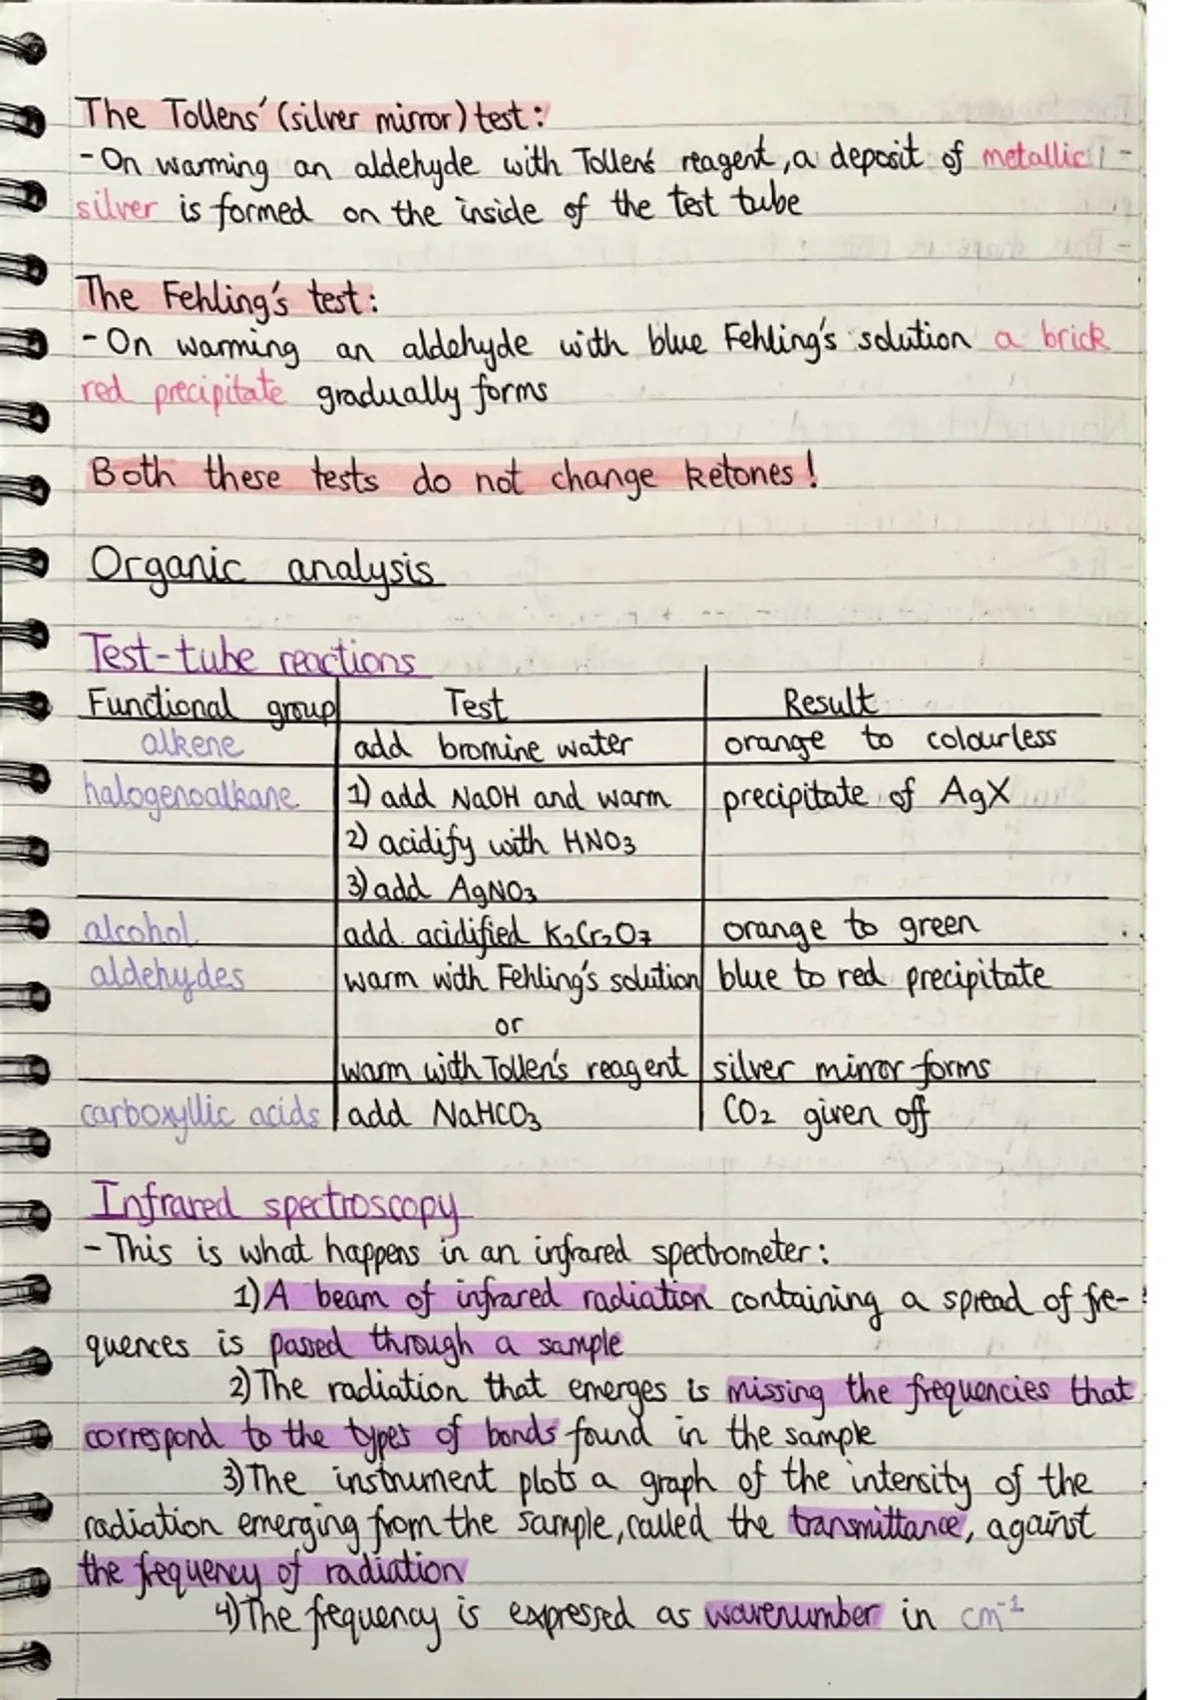 The Tollens' (silver mirror) test:
- On warming an aldehyde with Tollens' reagent, a deposit of metallic
silver is formed on the inside of the test tube
The Fehling's test:
- On warming an aldehyde with blue Fehling's solution a brick
red precipitate gradually forms
Both these tests do not change ketones!
Organic analysis
Test-tube reactions
Functional group Test Result
alkene add bromine water orange to colourless
halogenoalkane 1) add NaOH and warm precipitate of AgX
2) acidify with HNO3
3) add AgNO3
alcohol add acidified K2Cr2O7 orange to green
aldehydes warm with Fehling's solution blue to red precipitate
or
warm with Tollen's reagent silver mirror forms
carboxyllic acids add NaHCO3 CO2 given off
Infrared spectroscopy
- This is what happens in an infrared spectrometer:
1) A beam of infrared radiation containing a spread of fre-
quences is passed through a sample
2) The radiation that emerges is missing the frequencies that
correspond to the types of bonds found in the sample
3) The instrument plots a graph of the intensity of the
radiation emerging from the sample, called the transmittance, against
the frequency of radiation
4) The frequency is expressed as wavenumber in cm⁻¹